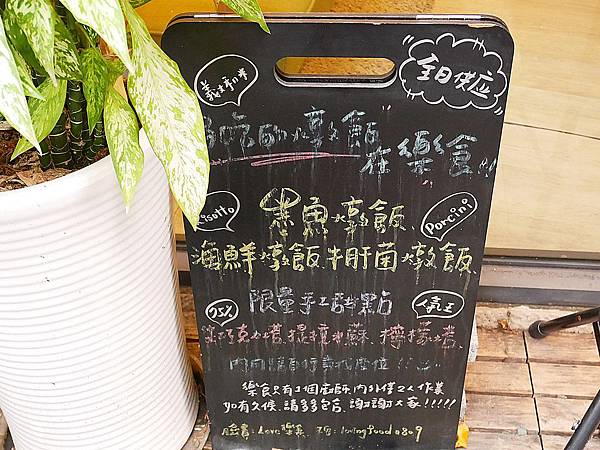 義大利米
全日供应
好吃的燉飯
在樂食
Risotto
Porcini
魚燉飯、
海鮮燉飯、牛肝菌燉飯、
75%
限量手工甜點
人氣王
巧克力塔、提拉米蘇、檸檬塔、
樂食只有1個廚師、內外僅2人作業
如有久候、請多多包含、謝謝大家!!!!!
臉書:Love樂食、 lovingfood0809